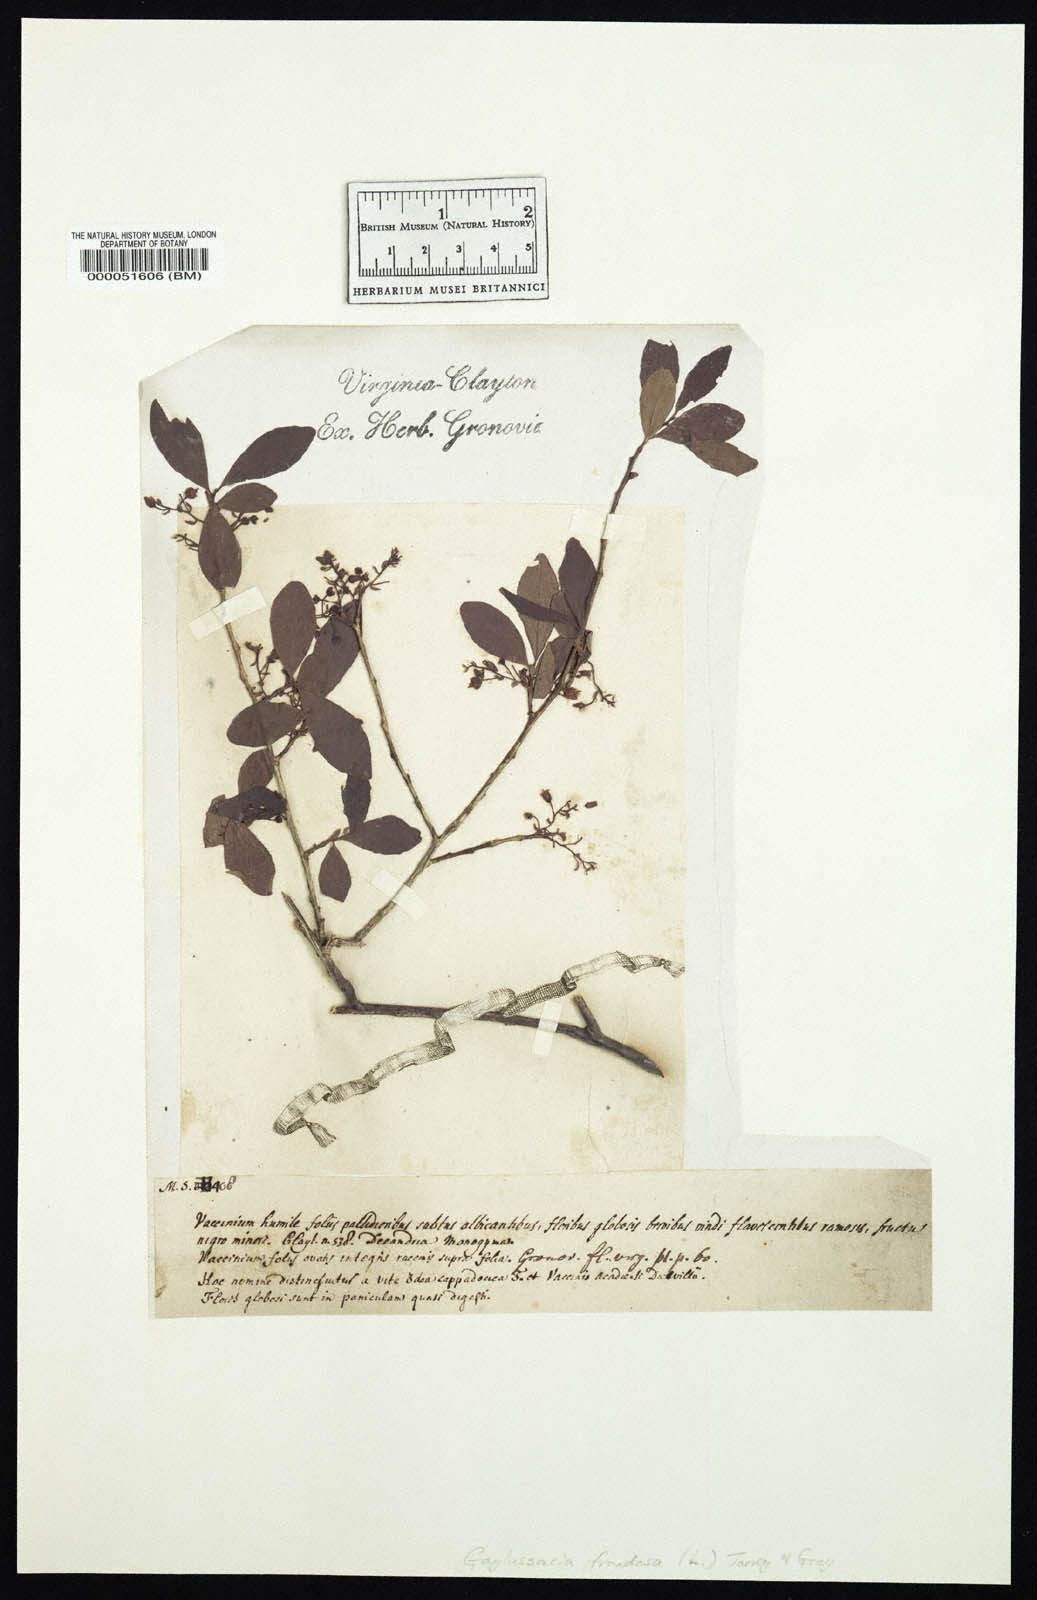 THE NATURAL HISTORY MUSEUM, LONDON
DEPARTMENT OF BOTANY
000051606 (BM)
1 2
BRITISH MUSEUM (NATURAL HISTORY)
1 2 3 4 5
HERBARIUM MUSEI BRITANNICI
Virginia-Clayton
Ex. Herb. Gronovii
M. S.
Vaccinium humile foliis pallidioribus subtus albicantibus, floribus globosis viridi flavescentibus ramosis, fructu
nigro minori. Clayt. n. 538. Decandria Monogyman
Vaccinium foliis ovatis integris racemis supra folia. Gronov. fl. virg. pl. p. 60.
Hoc nomine distinguitur a vite Idaea cappadocica T. et Vaccinio
Flores globosi sunt in paniculam quasi digesti.
Gaylussacia frondosa (L.) Torrey & Gray